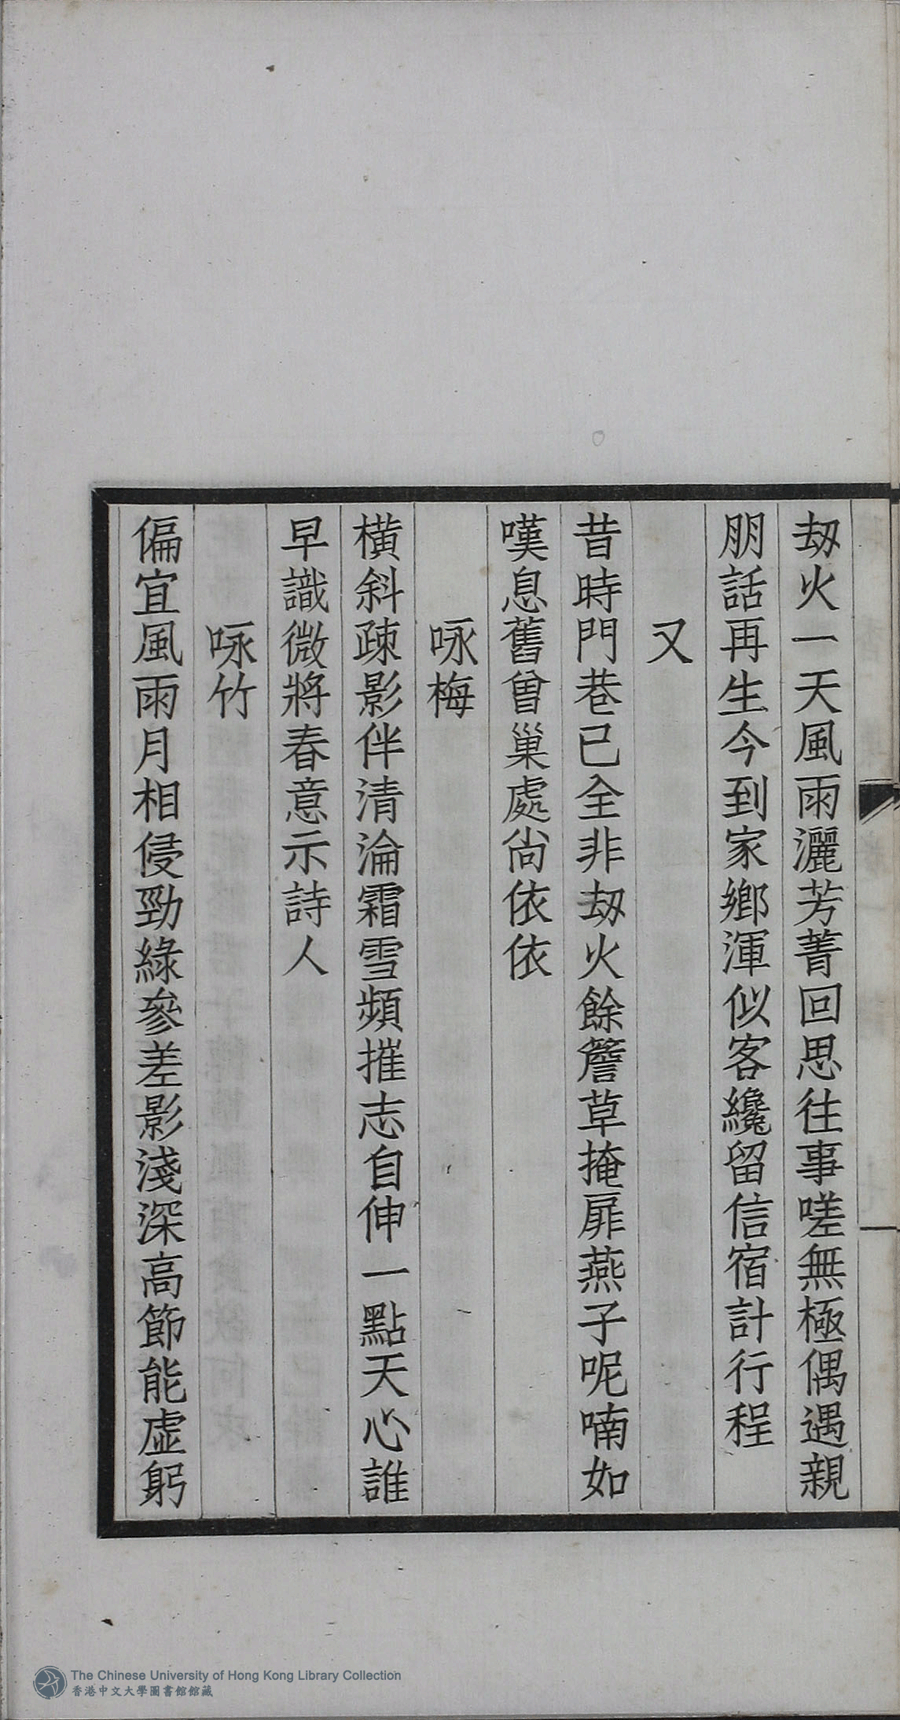 刼火一天風雨灑芳菁回思往事嗟無極偶遇親
朋話再生今到家鄉渾似客纔留信宿計行程
又
昔時門巷已全非刼火餘簷草掩扉燕子呢喃如
嘆息舊曾巢處尙依依
咏梅
橫斜疎影伴清淪霜雪頻摧志自伸一點天心誰
早識微將春意示詩人
咏竹
偏宜風雨月相侵勁綠參差影淺深高節能虛躬
The Chinese University of Hong Kong Library Collection
香港中文大學圖書館館藏